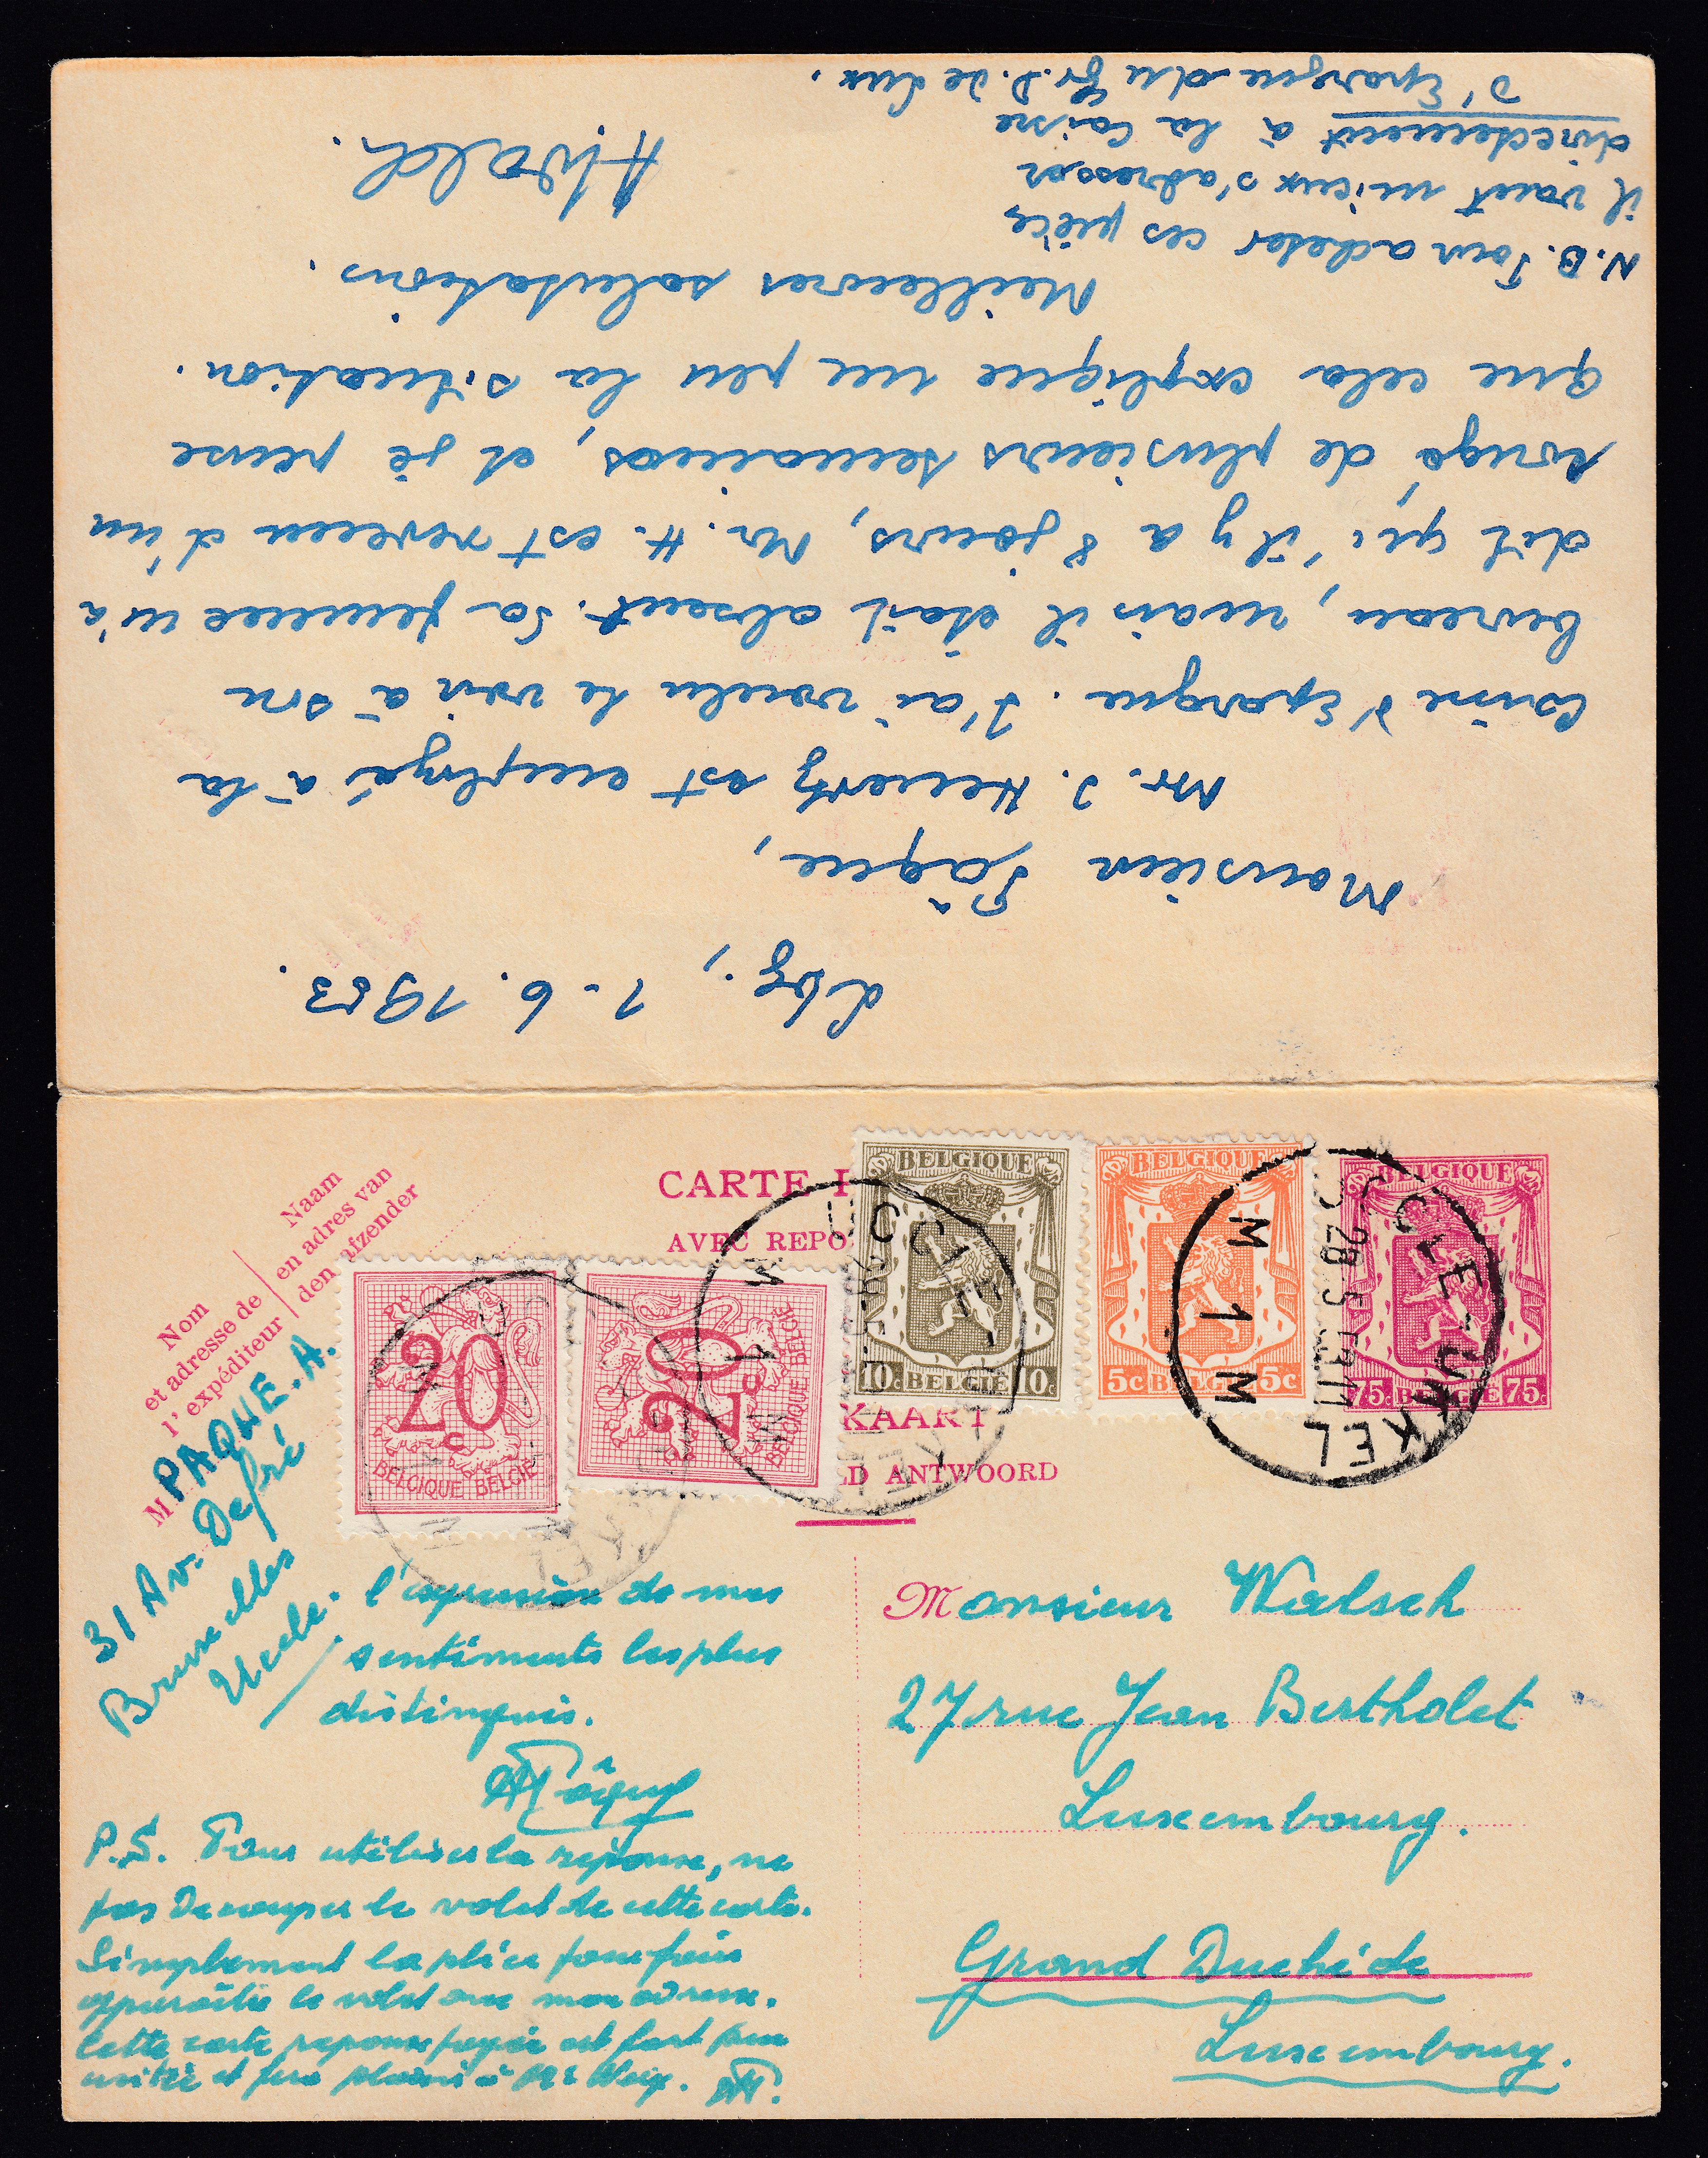 Lbg., 1-6. 1953.
Monsieur Pâque,
Mr. J. Hemertz est employé à la
Caisse d'Epargne. J'ai voulu le voir à son
bureau, mais il était absent. Sa femme m'a
dit qu'il y a 8 jours, Mr. H. est revenu d'un
congé de plusieurs semaines, et je pense
que cela explique un peu la situation.
Meilleures salutations.
N.B. Pour acheter ces pièces
il vaut mieux s'adresser
directement à la Caisse
d'Epargne du Gr. D. de Lux.
CARTE
AVEC REPO
KAART
LD ANTWOORD
Nom
et adresse de
l'expéditeur
Naam
en adres van
den afzender
M PAQUE. A.
31 Av. Defré
Bruxelles
Uccle.
20c
BELGIQUE BELGIE
20c
BELGIQUE BELGIE
BELGIQUE
10c BELGIE 10c
BELGIQUE
5c BELGIE 5c
BELGIQUE
75c BELGIE 75c
UCCLE-UKKEL
M 1 M
28 5
UCCLE
M 1
KEL
l'expression de mes
sentiments les plus
distingués.
APâque
P.S. Pour utiliser la réponse, ne
pas Decouper le volet de cette carte.
Simplement la plier pour faire
apparaître le volet avec mon adresse.
Cette carte reponse payée est fort peu
usitée et fera plaisir à Mr
Monsieur Walsch
27 rue Jean Bertholet
Luxembourg.
Grand Duché de
Luxembourg.